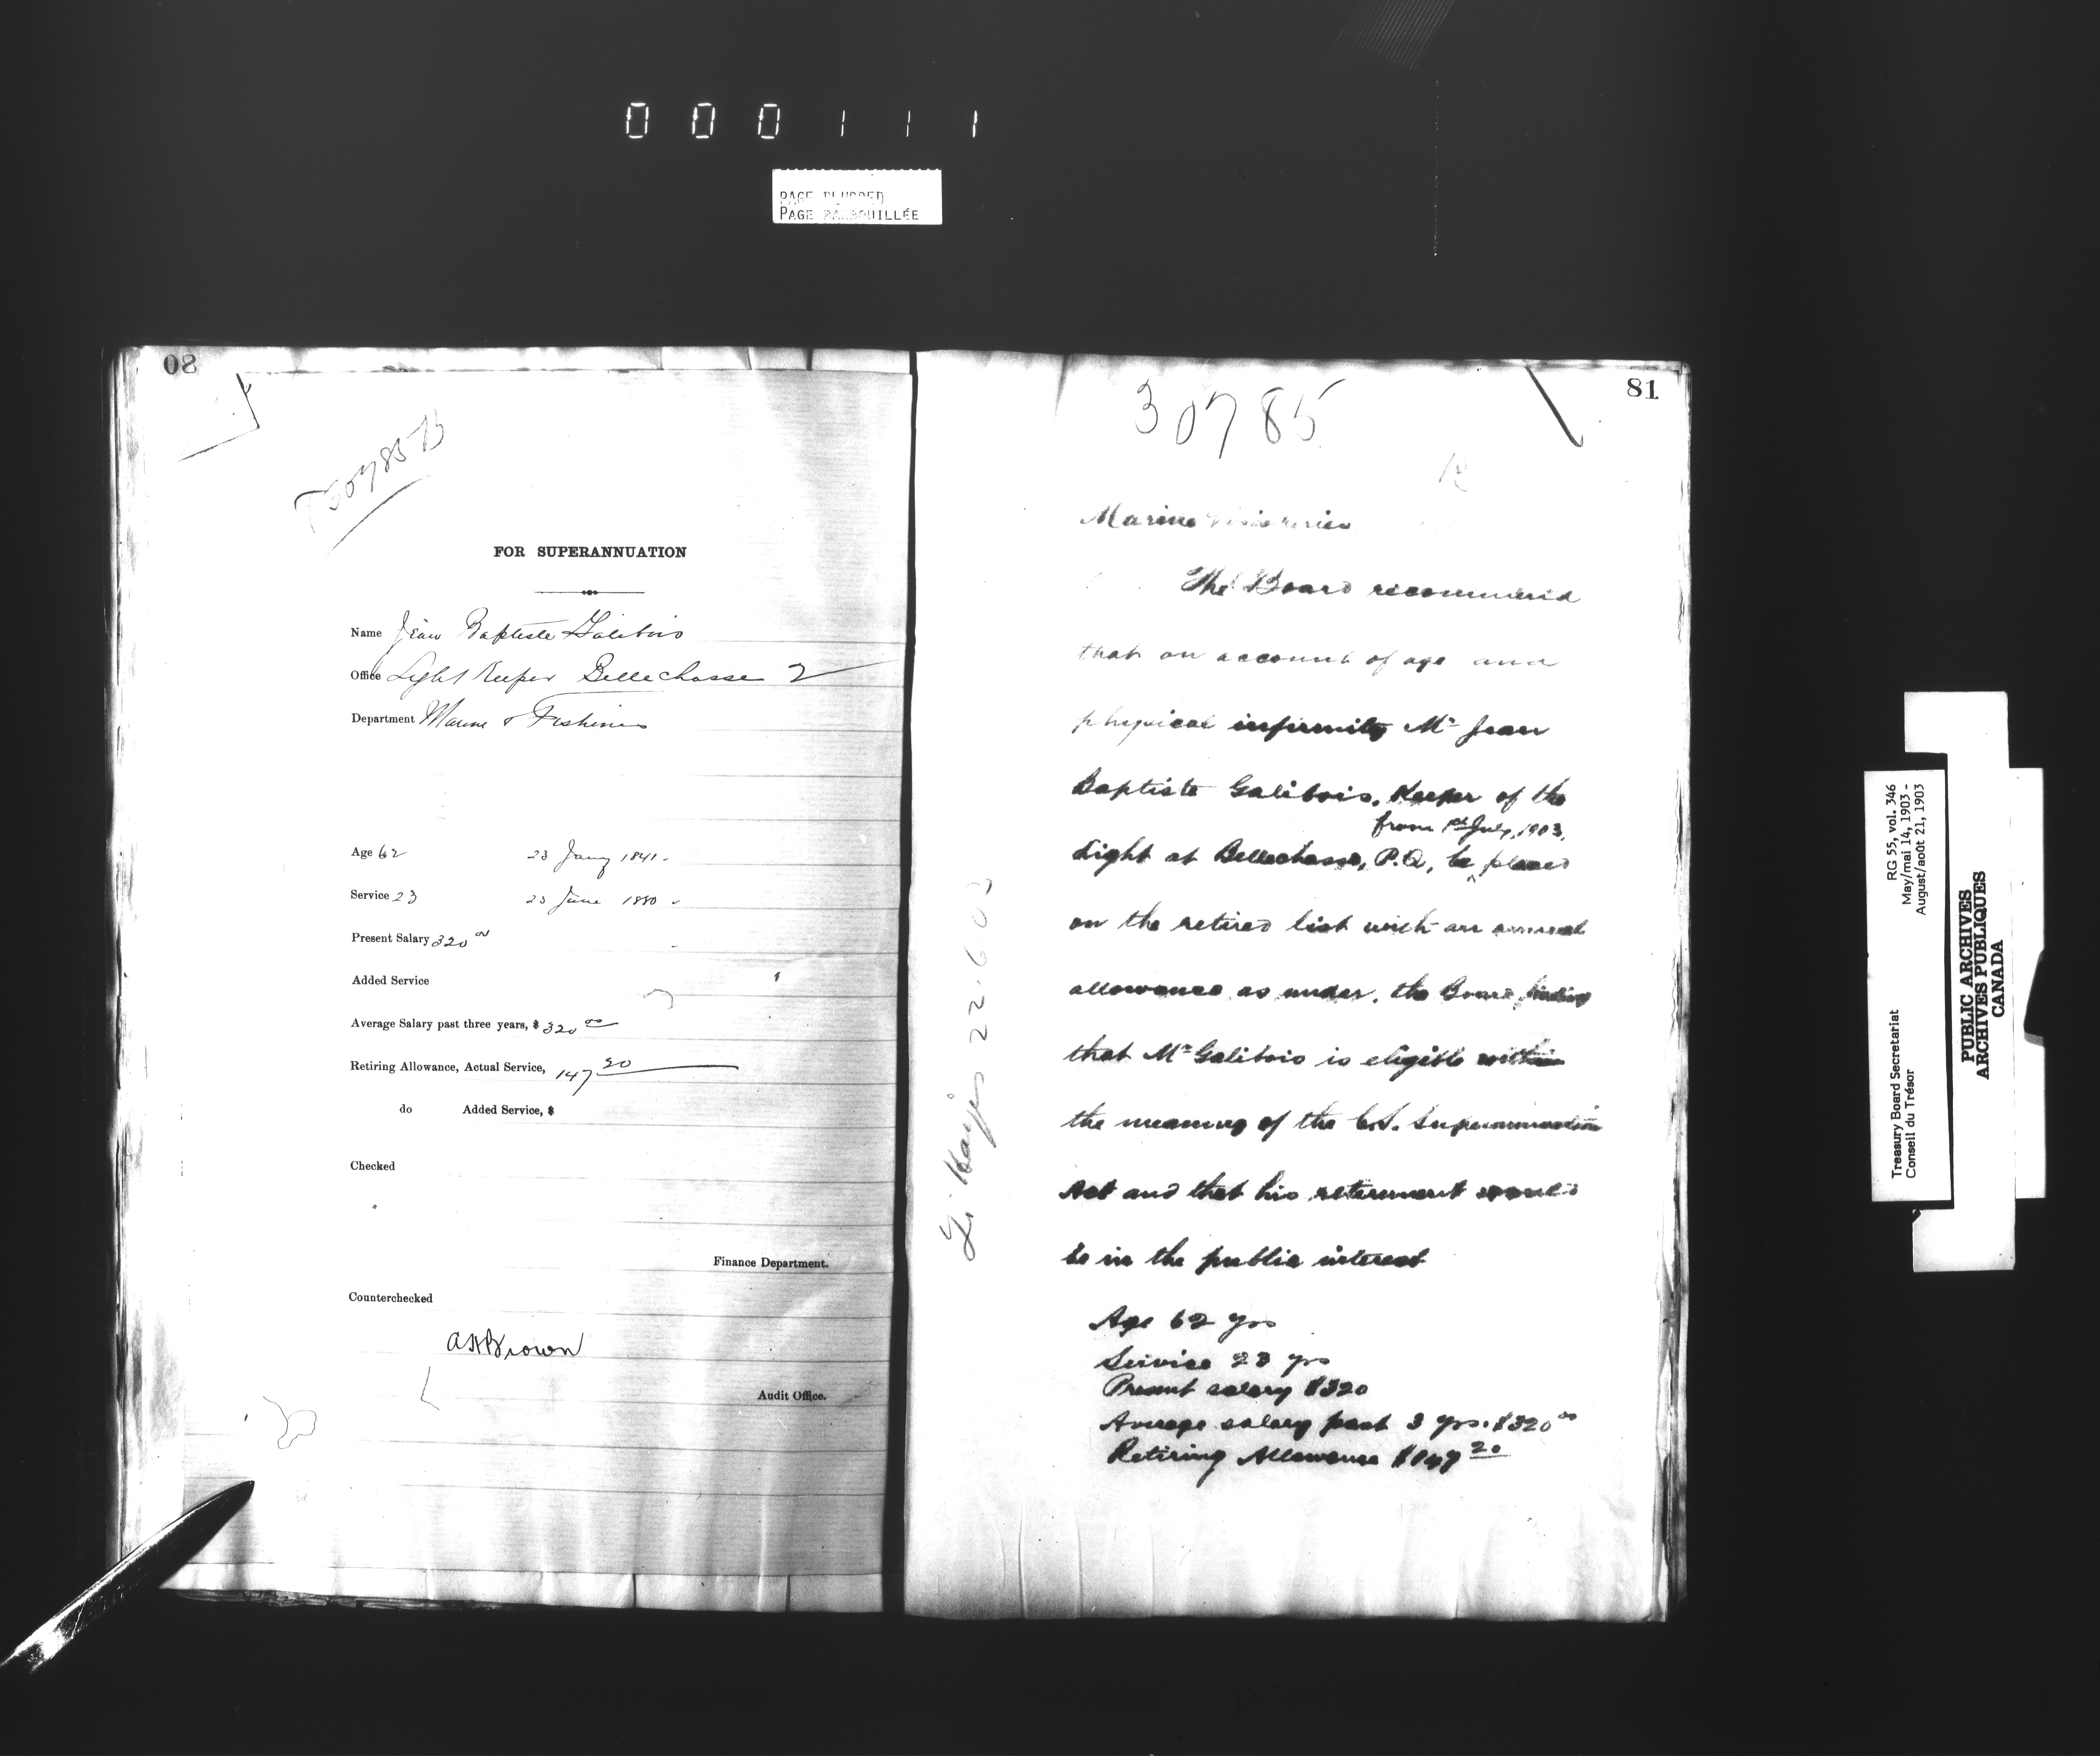 000111
PAGE
PAGE BARBOUILLÉE
80
30785B
FOR SUPERANNUATION
Name Jean Baptiste Galibois
Office Light Keeper Bellechasse Q
Department Marine & Fisheries
Age 62 23 Jany 1841.
Service 23 23 June 1880
Present Salary 320 00
Added Service
Average Salary past three years, $ 320 00
Retiring Allowance, Actual Service, 147 20
do Added Service, $
Checked
Finance Department.
Counterchecked
A H Brown
Audit Office.
81
30785
Marine Fisheries
The Board recommend
that on account of age and
physical infirmity Mr Jean
Baptiste Galibois, Keeper of the
from 1st July, 1903,
Light at Bellechasse, P.Q., be ^ placed
on the retired list with an annual
allowance as under, the Board finding
that Mr Galibois is eligible within
the meaning of the C.S. Superannuation
Act and that his retirement would
be in the public interest
Age 62 yrs
Service 23 yrs
Present salary $320
Average salary past 3 yrs. $320 00
Retiring Allowance $147 20
22.6.03
Treasury Board Secretariat RG 55, vol. 346
Conseil du Trésor May/mai 14, 1903 -
August/août 21, 1903
PUBLIC ARCHIVES
ARCHIVES PUBLIQUES
CANADA